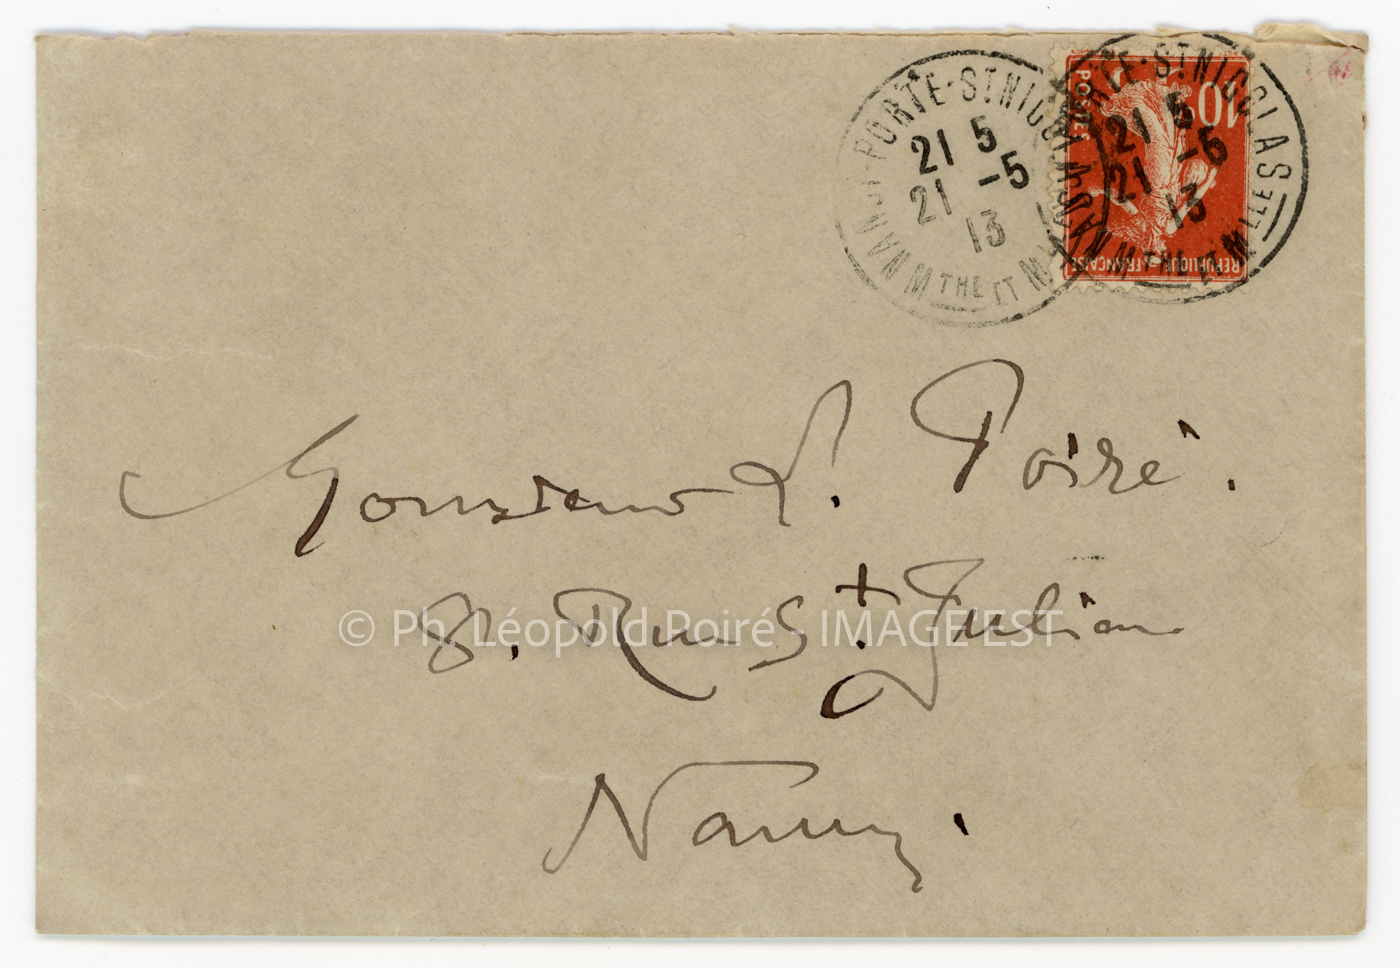 NANCY-PORTE-ST NICOLAS
21 5
21 -5
13
MTHE ET MLLE
NANCY-PORTE-ST NICOLAS
21 5
21 -5
13
MTHE ET MLLE
10c
POSTES
REPUBLIQUE FRANÇAISE
Monsieur L. Poiré.
8, Rue St Julien
Nancy.
© Ph. Léopold Poiré - IMAGE'EST